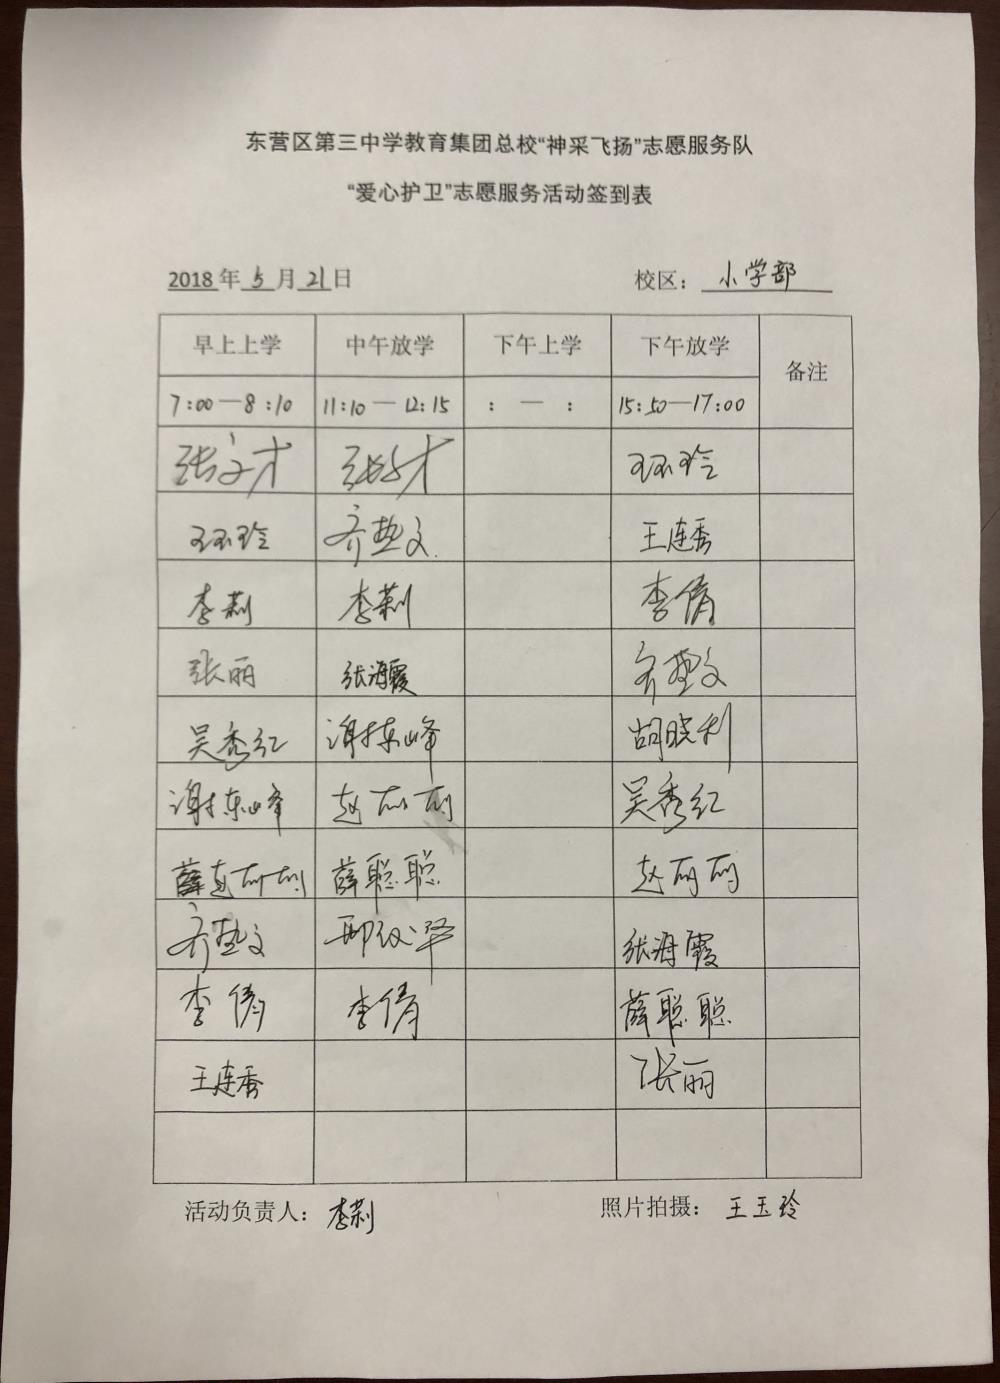 东营区第三中学教育集团总校“神采飞扬”志愿服务队
“爱心护卫”志愿服务活动签到表
2018年5月21日 校区：小学部
早上上学 中午放学 下午上学 下午放学 备注
7:00—8:10 11:10—12:15 : — : 15:50—17:00
张文才 张文才 王玉玲
王玉玲 齐垫文 王连秀
李莉 李莉 李倩
张丽 张海霞 齐垫文
吴秀红 谢拣峰 胡晓利
谢拣峰 赵丽丽 吴秀红
赵丽丽 薛聪聪 赵丽丽
齐垫文 张海霞
李倩 李倩 薛聪聪
王连秀 张丽
活动负责人：李莉 照片拍摄：王玉玲